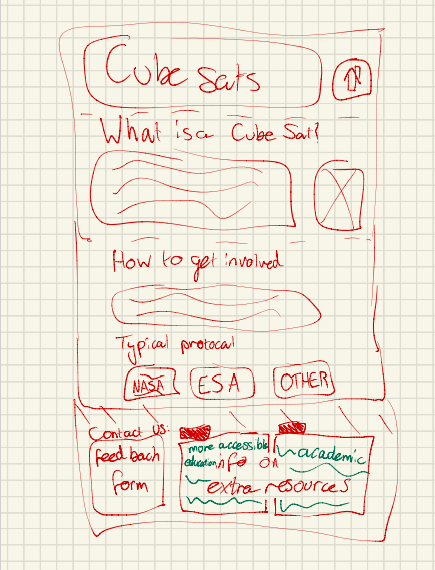 Cube Sats
What is a Cube Sat?
How to get involved
Typical protocal
NASA
ESA
OTHER
Contact us:
feed bach
form
more accessible
education
info on
academic
extra resources